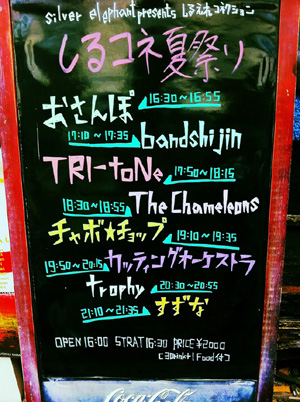 silver elephant presents しるえれコネクション
しるコネ夏祭り
おさんぽ 16:30~16:55
17:10~17:35 bandshijin
TRI-toNe 17:50~18:15
18:30~18:55 The Chameleons
チャボ★チョップ 19:10~19:35
19:50~20:15 カッティングオーケストラ
trophy 20:30~20:55
21:10~21:35 すずな
OPEN 16:00 STRAT 16:30 PRICE ¥2000
Coca-Cola